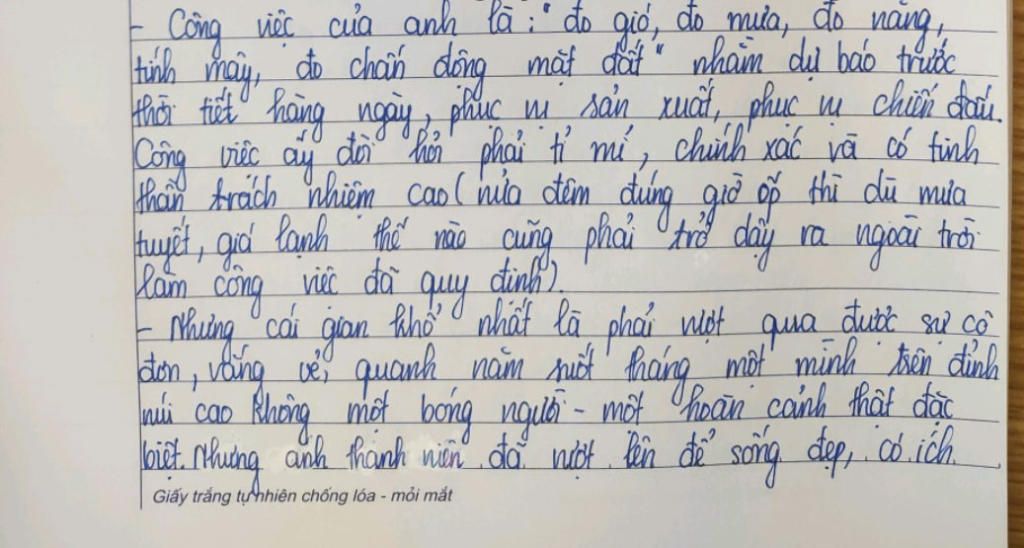 - Công việc của anh là: "đo gió, đo mưa, đo nắng,
tính mây, đo chấn động mặt đất" nhằm dự báo trước
thời tiết hàng ngày, phục vụ sản xuất, phục vụ chiến đấu.
Công việc ấy đòi hỏi phải tỉ mỉ, chính xác và có tinh
thần trách nhiệm cao (nửa đêm đúng giờ ốp thì dù mưa
tuyết, giá lạnh thế nào cũng phải trở dậy ra ngoài trời
làm công việc đã quy định).
- Nhưng cái gian khổ nhất là phải vượt qua được sự cô
đơn, vắng vẻ, quanh năm suốt tháng một mình trên đỉnh
núi cao không một bóng người - một hoàn cảnh thật đặc
biệt. Nhưng anh thanh niên đã vượt lên để sống đẹp, có ích
Giấy trắng tự nhiên chống lóa - mỏi mắt